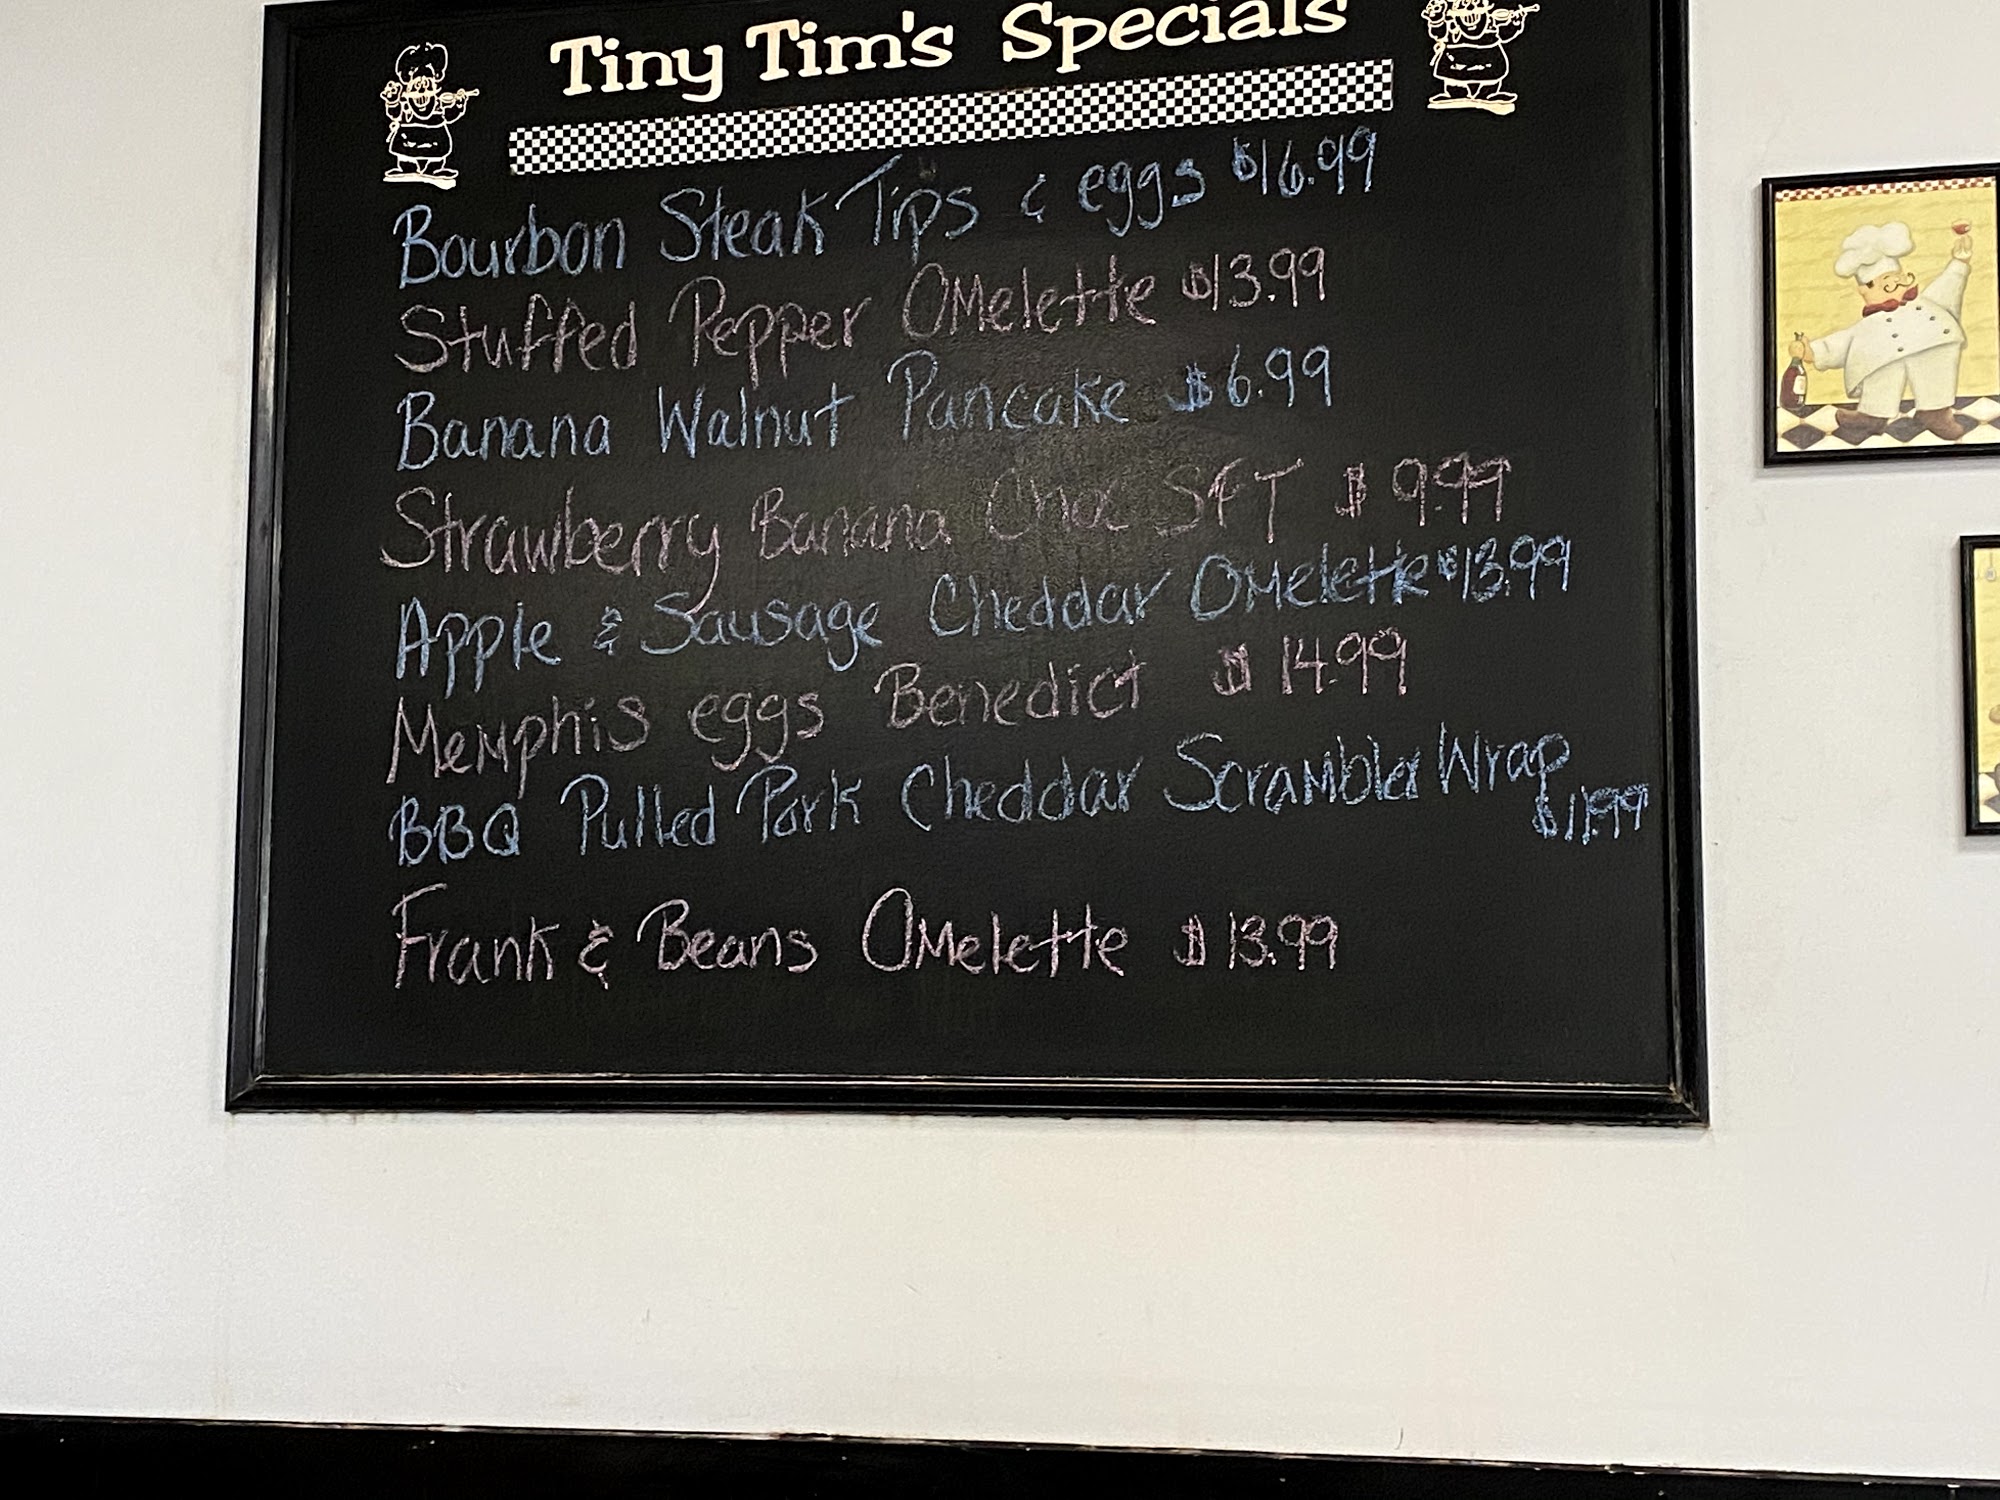 Tiny Tim's Specials
Bourbon Steak Tips & eggs $16.99
Stuffed Pepper Omelette $13.99
Banana Walnut Pancake $6.99
Strawberry Banana Choc SFT $9.99
Apple & Sausage Cheddar Omelette $13.99
Memphis eggs Benedict $14.99
BBQ Pulled Pork Cheddar Scrambler Wrap
$11.99
Frank & Beans Omelette $13.99